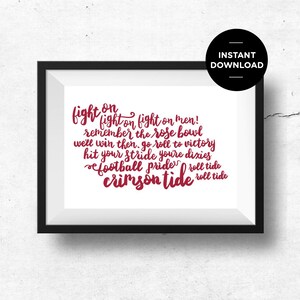 INSTANT
DOWNLOAD
fight on
fight on fight on men!
remember the rose bowl
we'll win then. go roll to victory
hit your stride you're dixies
football pride roll tide
crimson tide roll tide